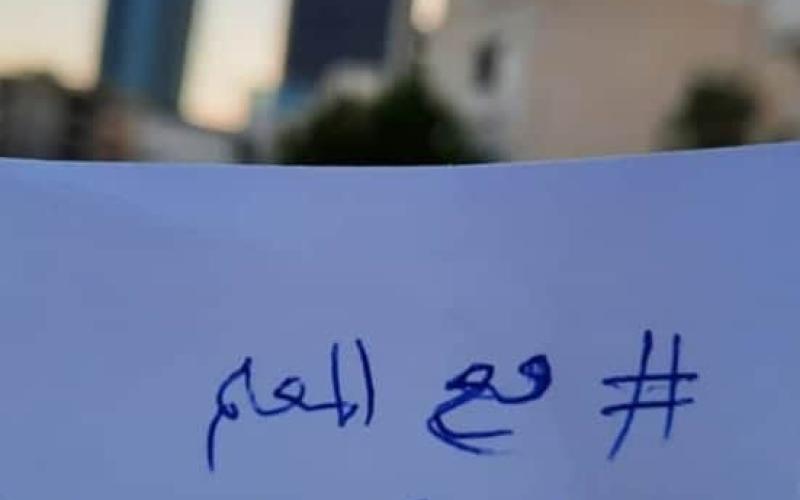 # مع المعلم